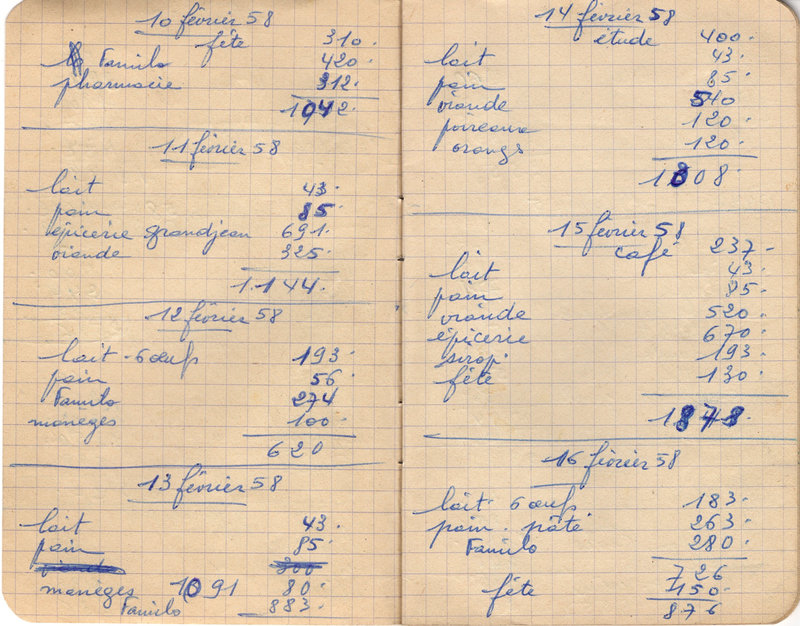 10 février 58
fête 310.
Familo 420.
pharmacie 312.
1042.
11 février 58
lait 43.
pain 85.
épicerie grandjean 691.
viande 325.
1.144.
12 février 58
lait - 6 œufs 193.
pain 56.
Familo 274
manèges 100.
620
13 février 58
lait 43.
pain 85.
manèges 1091 80.
Familo 883.
14 février 58
étude 400.
lait 43.
pain 85.
viande 540
poireaux 120.
orangs 120.
1308.
15 février 58
café 237-
lait 43.
pain 85.
viande 520.
épicerie 670.
sirop. 193.
fête 130.
1878.
16 février 58
lait - 6 œufs 183.
pain - pâté 263.
Familo 280.
726
fête 150.
876